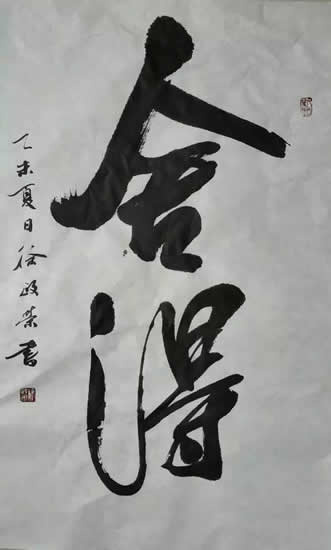 舍得
乙未夏日徐政荣书